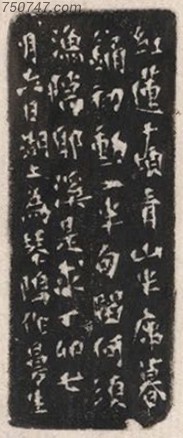 750747.com
紅蓮千頃青山半席暮
初動一半句留何須
漁隱溪是求丁卯七
月六日湖上為琴隖作曼生